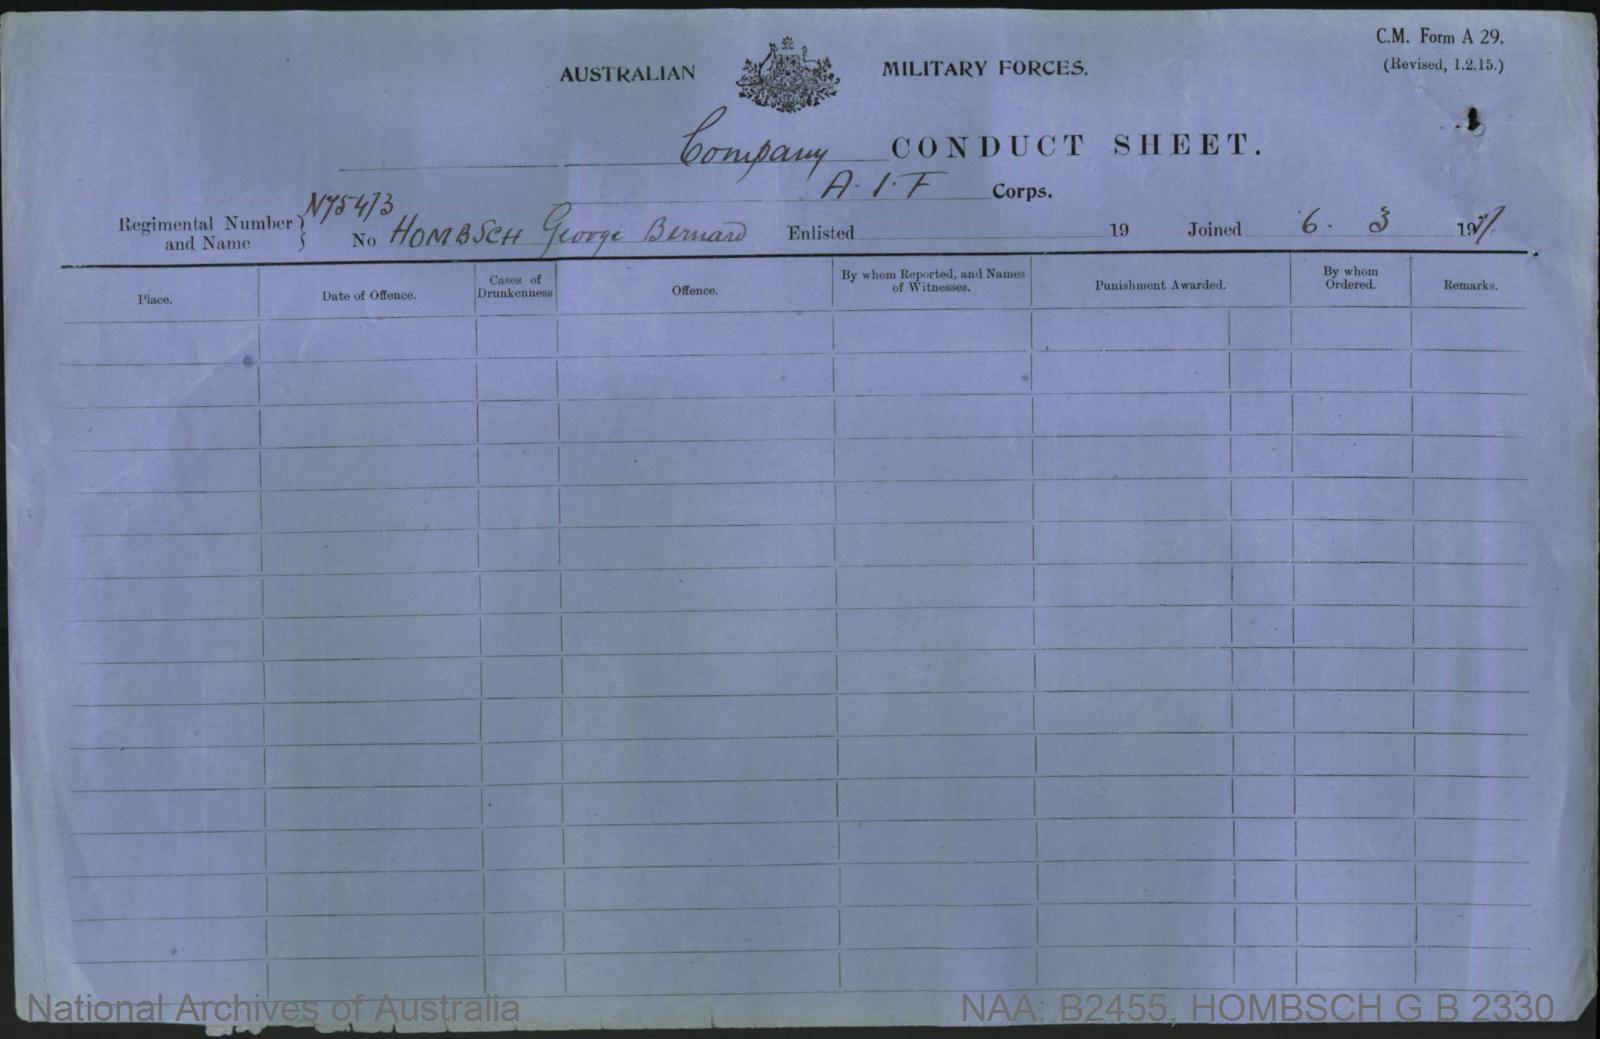 C.M. Form A 29.
(Revised, 1.2.15.)
AUSTRALIAN MILITARY FORCES.
Company CONDUCT SHEET.
A.I.F Corps.
Regimental Number and Name } N75473
No HOMBSCH George Bernard Enlisted 19 Joined 6. 3 1917.
Place. Date of Offence. Cases of Drunkenness Offence. By whom Reported, and Names of Witnesses. Punishment Awarded. By whom Ordered. Remarks.
National Archives of Australia NAA: B2455, HOMBSCH G B 2330